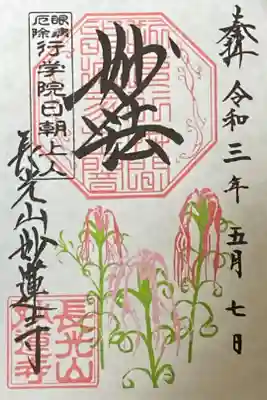 奉拝 令和三年五月七日
妙法
眼病
厄除
行学院日朝上人
長光山妙蓮寺
長光山
妙蓮寺